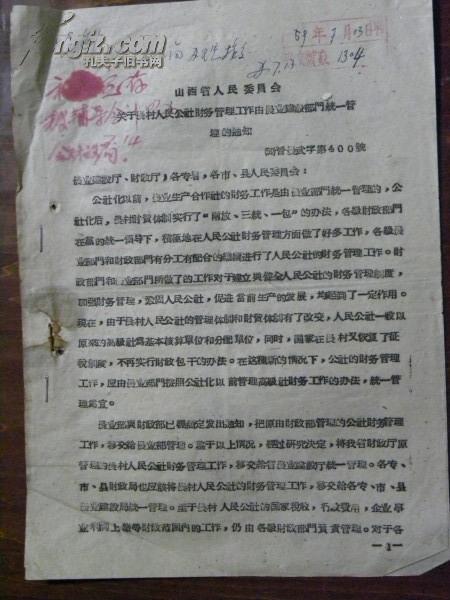 59年7月13日
1304
山西省人民委员会
关于農村人民公社財务管理工作由農业建設部門統一管
理的通知
農业建設厅、財政厅,各专署,各市、县人民委员会:
公社化以前,農业生产合作社的財务工作是由農业部門統一管理的,公
社化后,農村財貿体制实行了“兩放、三統、一包”的办法,各級財政部門
在党的統一領导下,积極地在人民公社財务管理方面做了好多工作,各級農
业部門和財政部門有分工有配合的
進行了人民公社的財务管理工作。財
政部門和農业部門所做了的工作对于建立與健全人民公社的財务管理制度,
加强財务管理,巩固人民公社,促進当前生产的發展,均起到了一定作用。
現在,由于農村人民公社的管理体制和財貿体制有了改变,人民公社一般以
原來的高級社爲基本核算單位和分配單位,同时,国家在農村又恢复了征
稅制度,不再实行財政包干的办法。在这种新的情况下,公社的財务管理
工作,应由農业部門按照公社化以前管理高級社財务工作的办法,統一管
理爲宜。
農业部與財政部已联合發出通知,把原由財政部管理的公社財务管理
工作,移交給農业部管理。鑒于以上情况,經过研究决定,将我省財政厅原
管理的農村人民公社財务管理工作,移交給省農业建設厅統一管理。各专、
市、县財政局也应該将農村人民公社的財务管理工作,移交給各专、市、县
農业建設局統一管理。至于農村人民公社的国家稅收,行政費用,企业事
业利潤上繳等財政范圍內的工作,仍由各級財政部門負責管理。对于各
—1—